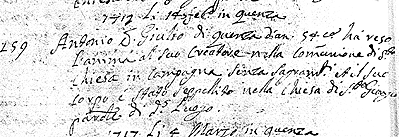 1717 Li 14 feb. in quenza
159 Antonio D. Giulio di quenza d'an. 54 cª ha reso
l'anima al suo Creatore nella comunione di Stª
Chiesa in Campagna senza sagramti et il suo
corpo è stato seppellito nella Chiesa di S. Giorgio
parole di do Luogo.
1717 Li 4 Marzo in quenza